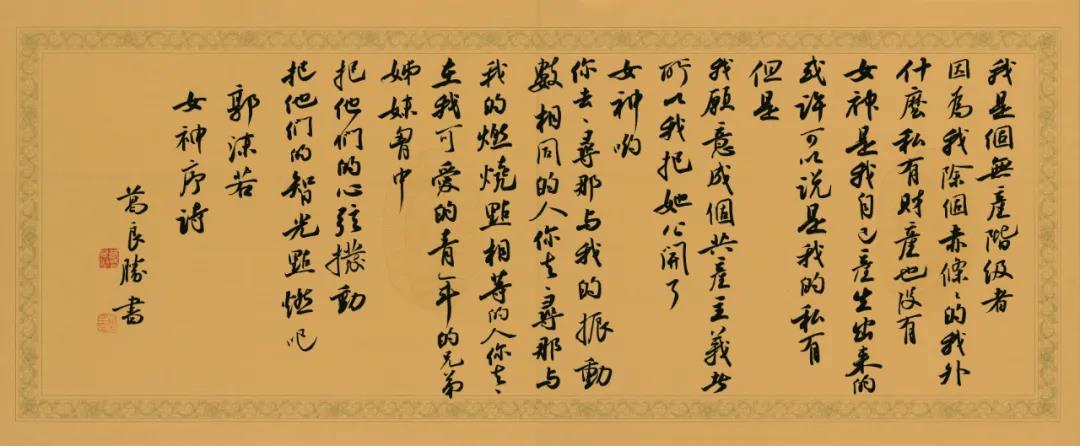 我是個無産階级者
因為我除個赤條々的我外
什麽私有财産也没有
女神是我自己産生出来的
或许可以说是我的私有
但是
我願意成個共産主義者
所以我把她公開了
女神哟
你去々尋那与我的振動
數相同的人你去々尋那与
我的燃燒點相等的人你去々
在我可愛的青年的兄弟
姊妹胷中
把他们的心弦撥動
把他们的智光點燃吧
郭沫若
女神序诗
葛良勝書